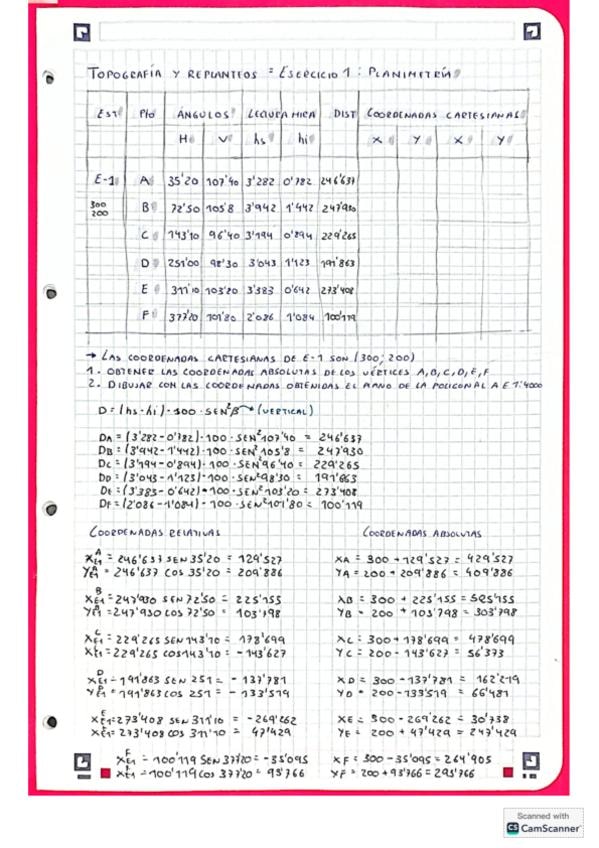 TOPOGRAFÍA Y REPLANTEOS = EJERCICIO 1: PLANIMETRÍA
EST Pto ÁNGULOS LECTURA MIRA DIST COORDENADAS CARTESIANAS
H V hs hi X Y X Y
E-1 A 35'20 107'40 3'282 0'782 246'637
300 B 72'50 105'8 3'942 1'442 247'930
200
C 143'10 96'40 3'194 0'894 229'265
D 251'00 98'30 3'043 1'123 191'863
E 311'10 103'20 3'383 0'642 273'408
F 377'20 101'80 2'086 1'084 100'119
→ LAS COORDENADAS CARTESIANAS DE E-1 SON (300; 200)
1. OBTENER LAS COORDENADAS ABSOLUTAS DE LOS VÉRTICES A,B,C,D,E,F
2. DIBUJAR CON LAS COORDENADAS OBTENIDAS EL PLANO DE LA POLIGONAL A E 1:4000
D = (hs - hi) · 100 · SEN²β → (VERTICAL)
DA = (3'282-0'782) · 100 · SEN²107'40 = 246'637
DB = (3'942-1'442) · 100 · SEN²105'8 = 247'930
DC = (3'194-0'894) · 100 · SEN²96'40 = 229'265
DD = (3'043-1'123) · 100 · SEN²98'30 = 191'863
DE = (3'383-0'642) · 100 · SEN²103'20 = 273'408
DF = (2'086-1'084) · 100 · SEN²101'80 = 100'119
COORDENADAS RELATIVAS
X A E1 = 246'637 SEN 35'20 = 129'527
Y A E1 = 246'637 COS 35'20 = 209'886
X B E1 = 247'930 SEN 72'50 = 225'155
Y B E1 = 247'930 COS 72'50 = 103'798
X C E1 = 229'265 SEN 143'10 = 178'699
Y C E1 = 229'265 COS 143'10 = -143'627
X D E1 = 191'863 SEN 251 = -137'781
Y D E1 = 191'863 COS 251 = -133'519
X E E1 = 273'408 SEN 311'10 = -269'262
X E E1 = 273'408 COS 311'10 = 47'429
X F E1 = 100'119 SEN 377'20 = -35'095
X F E1 = 100'119 COS 377'20 = 93'766
COORDENADAS ABSOLUTAS
XA = 300 + 129'527 = 429'527
YA = 200 + 209'886 = 409'886
XB = 300 + 225'155 = 525'155
YB = 200 + 103'798 = 303'798
XC = 300 + 178'699 = 478'699
YC = 200 - 143'627 = 56'373
XD = 300 - 137'781 = 162'219
YD = 200 - 133'519 = 66'481
XE = 300 - 269'262 = 30'738
YE = 200 + 47'429 = 247'429
XF = 300 - 35'095 = 264'905
YF = 200 + 93'766 = 293'766
Scanned with
CS CamScanner